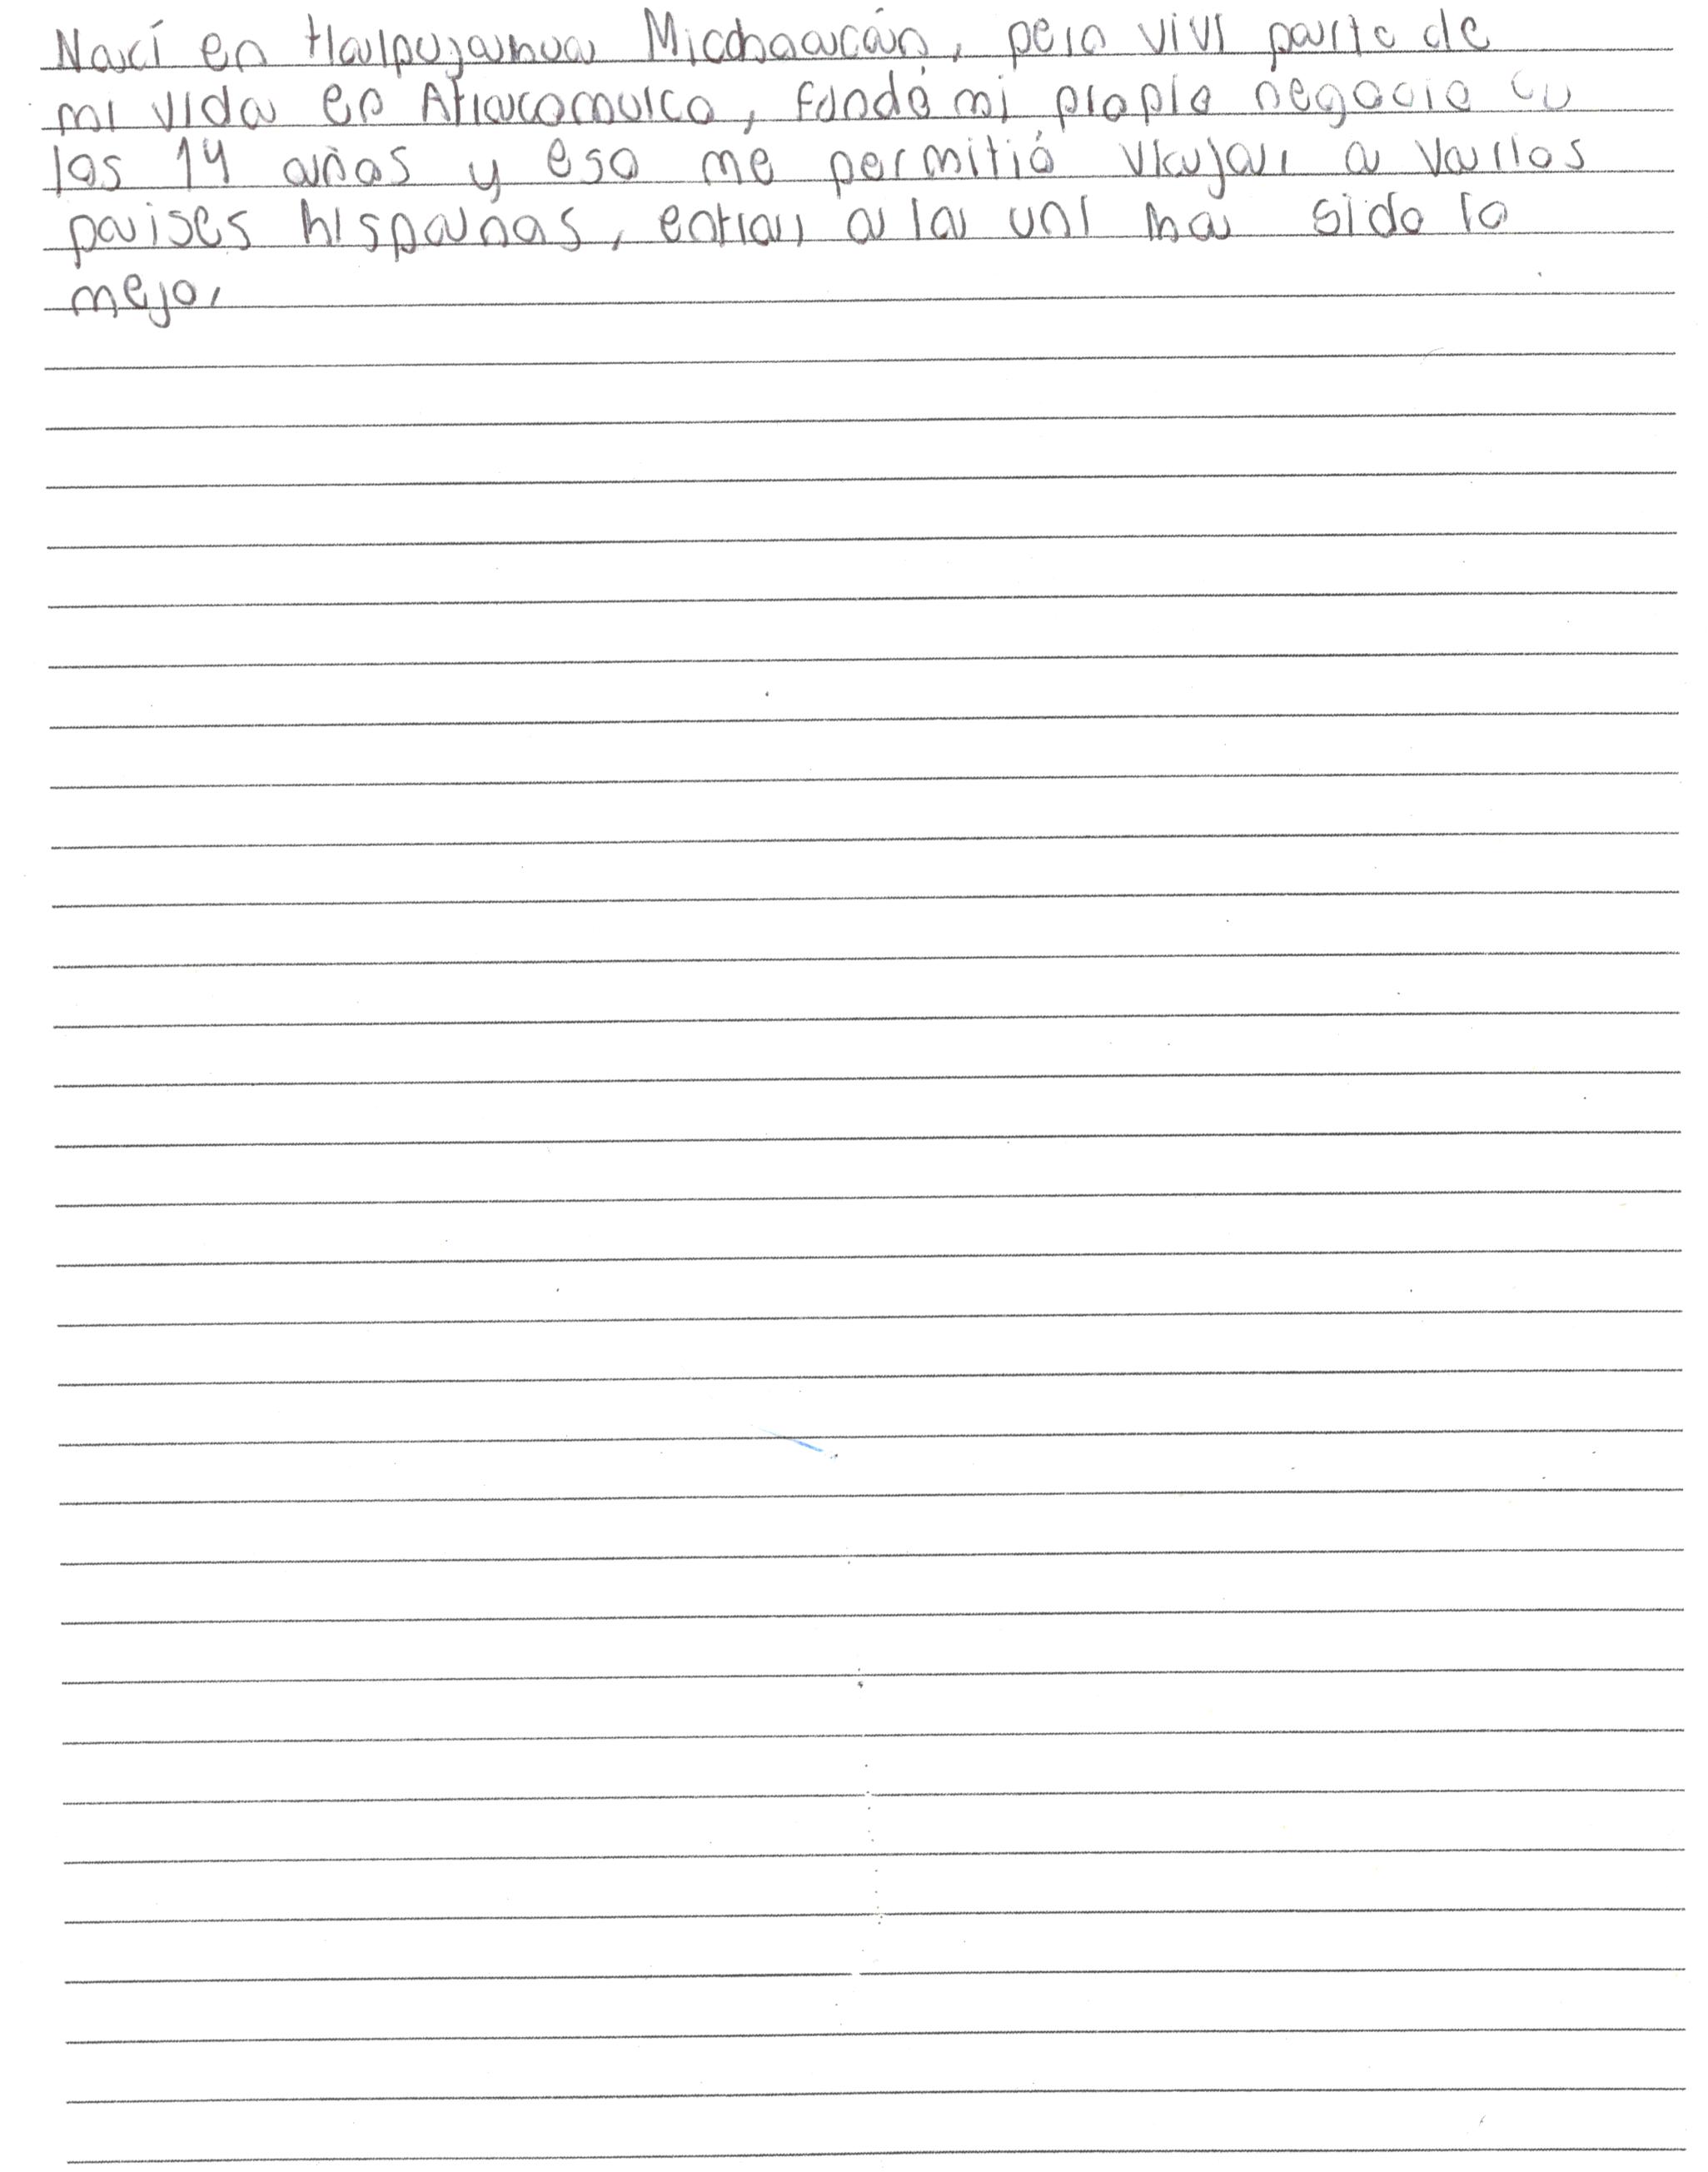 Nací en tlalpujahua Michoacán, pero viví parte de
mi vida en Atlacomulco, fundé mi propio negocio a
los 14 años y eso me permitió viajar a varios
paises hispanos, entrar a la uni ha sido lo
mejor